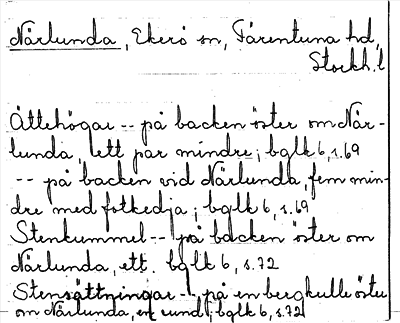 Närlunda, Ekerö sn, Färentuna hd,
Stockh.l
Ättehögar -- på backen öster om När-
lunda, ett par mindre; bglk 6, s.69
-- på backen vid Närlunda, fem min-
dre med fotkedja; bglk 6, s.69
Stenkummel -- på backen öster om
Närlunda, ett. bglk 6, s.72
Stensättningar -- på en bergkulle öster
om Närlunda, en rund; bglk 6, s.72